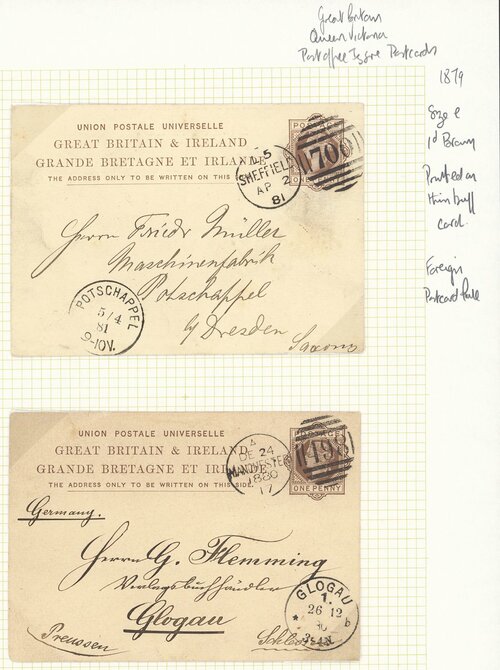 Great Britain
Queen Victoria
Post office Issue Postcards
1879
Size e
1d Brown
Printed on
thin buff
card.
Foreign
Postcard Rate
UNION POSTALE UNIVERSELLE
GREAT BRITAIN & IRELAND
GRANDE BRETAGNE ET IRLANDE
THE ADDRESS ONLY TO BE WRITTEN ON THIS SIDE
SHEFFIELD
AP 2
81
700
Herrn Friedr Müller
Maschinenfabrik
Potschappel
b/ Dresden
Saxony
POTSCHAPPEL
5/4
81
9-10V.
UNION POSTALE UNIVERSELLE
GREAT BRITAIN & IRELAND
GRANDE BRETAGNE ET IRLANDE
THE ADDRESS ONLY TO BE WRITTEN ON THIS SIDE
MANCHESTER
DE 24
1880
17
498
POSTAGE
ONE PENNY
Germany.
Herrn G. Flemming
Verlagsbuchhändler
Glogau
Preussen
Schlesien
GLOGAU
1.
26 12
80